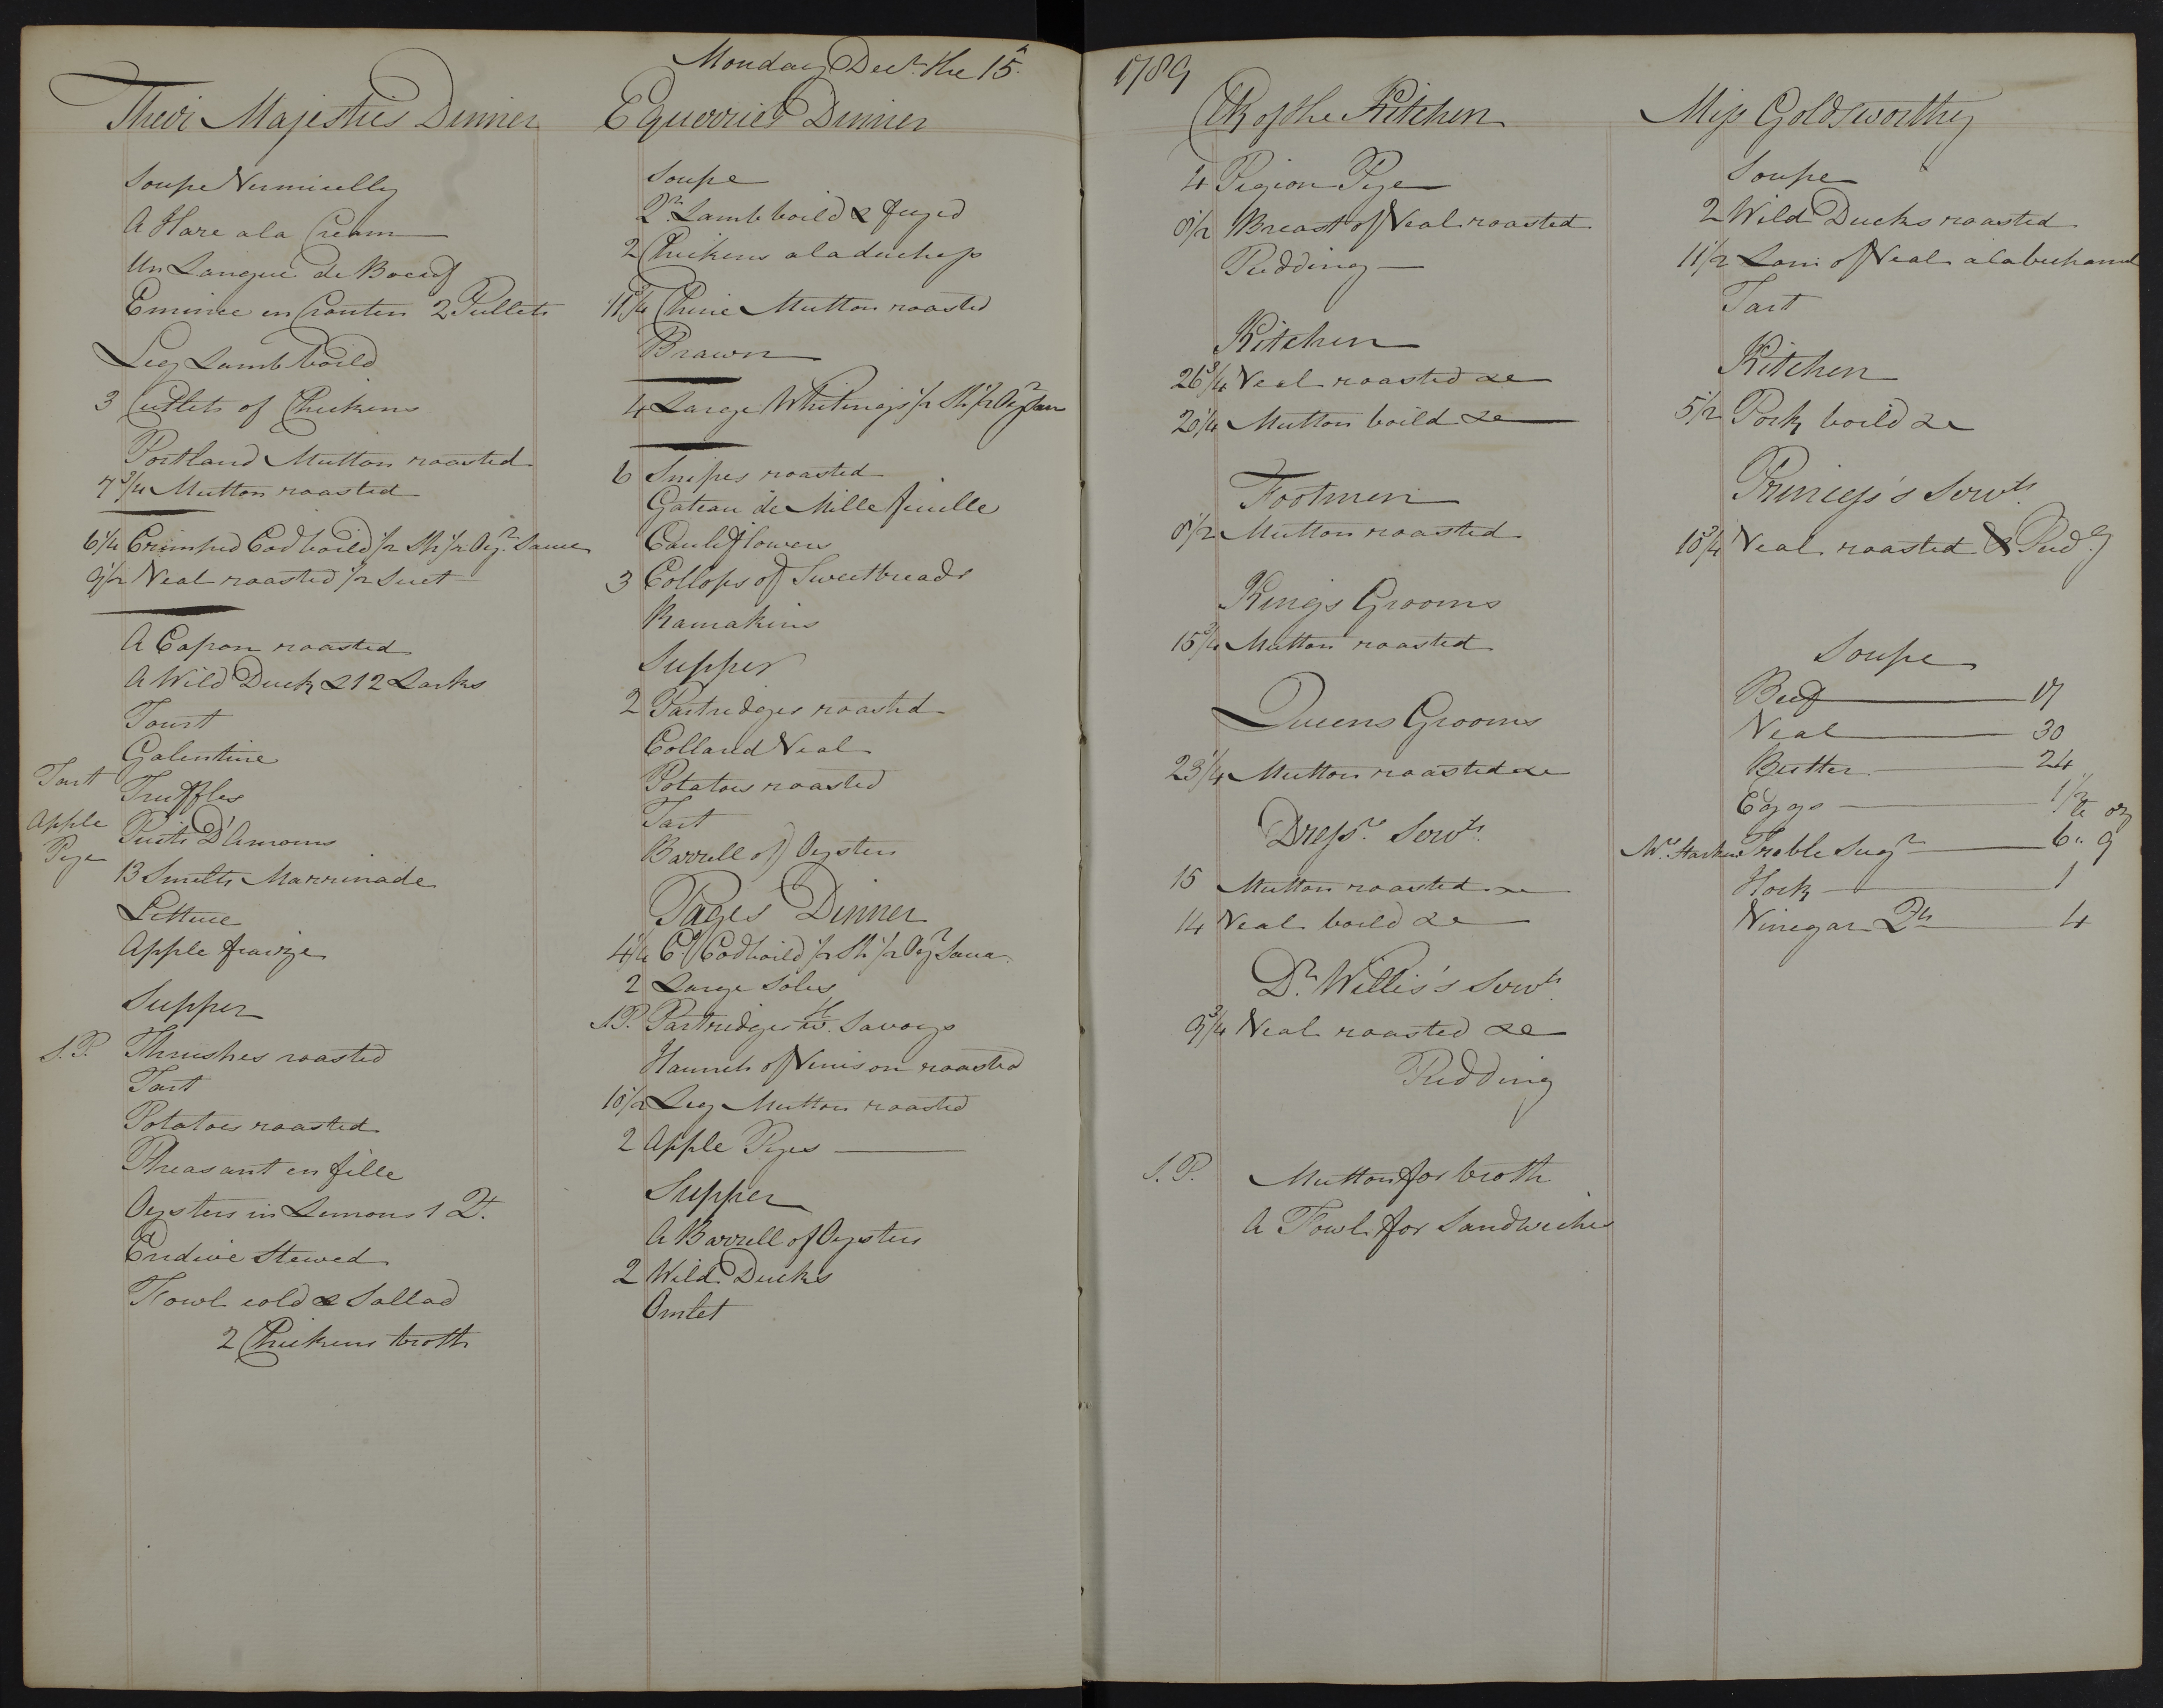 Monday Decr. the 15th
1789
Their Majesties Dinner
Soupe Vermicelly
A Hare a la Cream
Un Langue de Boeuf
Emince en Crouten 2 Pullets
Leg Lamb boild
3 Cutlets of Chickens
Portland Mutton roasted
7 3/4 Mutton roasted
6 1/4 Crimped Cod boild 1/2 Sh 1/2 Oyr. Sauce
9 1/2 Veal roasted 1/2 Suet
A Capon roasted
A Wild Duck & 12 Larks
Tourt
Galentine
Tart
Truffles
Apple Pye
Puits D'Amours
13 Smelts Marrinade
Lettuce
Apple fraize
Supper
S.P. Thrushes roasted
Tart
Potatoes roasted
Pheasant en fille
Oysters in Lemons 1 Qt.
Endive Stewed
Fowl cold & Sallad
2 Chickens broth
Equerries Dinner
Soupe
2r. Lamb boild & fryed
2 Chickens a la duchess
11 3/4 Chine Mutton roasted
Brawn
4 Large Whitings 1/2 Sh 1/2 Oyr
6 Snipes roasted
Gateau de Mille fuille
Cauliflowers
3 Collops of Sweetbreads
Ramakins
Supper
2 Partridges roasted
Collard Veal
Potatoes roasted
Tart
Barrell of Oysters
Pages Dinner
4 1/4 Cd. Cod boild 1/2 Sh 1/2 Oyr Sauce
2 Large Soles
S.P. Partridges wt. Savoys
Haunch of Venison roasted
10 1/2 Leg Mutton roasted
2 Apple Pyes
Supper
A Barrell of Oysters
2 Wild Ducks
Omlet
Clk of the Kitchen
4 Pigion Pye
8 1/2 Breast of Veal roasted
Pudding
Kitchen
26 3/4 Veal roasted &c
20 1/4 Mutton boild &c
Footmen
8 1/2 Mutton roasted
Kings Grooms
15 3/4 Mutton roasted
Queens Grooms
23 1/4 Mutton roasted &c
Dressrs. Servts.
15 Mutton roasted &c
14 Veal boild &c
Dr. Willis's Servts.
9 3/4 Veal roasted &c
Pudding
S.P. Mutton for broth
A Fowl for Sandwiches
Miss Goldsworthy
Soupe
2 Wild Ducks roasted
11 1/2 Loin of Veal a la bechamel
Tart
Kitchen
5 1/2 Pork boild &c
Princess's Servts.
10 3/4 Veal roasted & Pudg
Soupe
Beef 17
Veal 30
Butter 24
Eggs 1/2
lb oz
Treble Sugr 6 " 9
Hock 1
Vinegar Qts 4